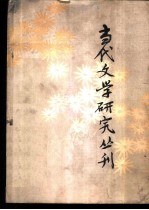 当代文学研究丛刊